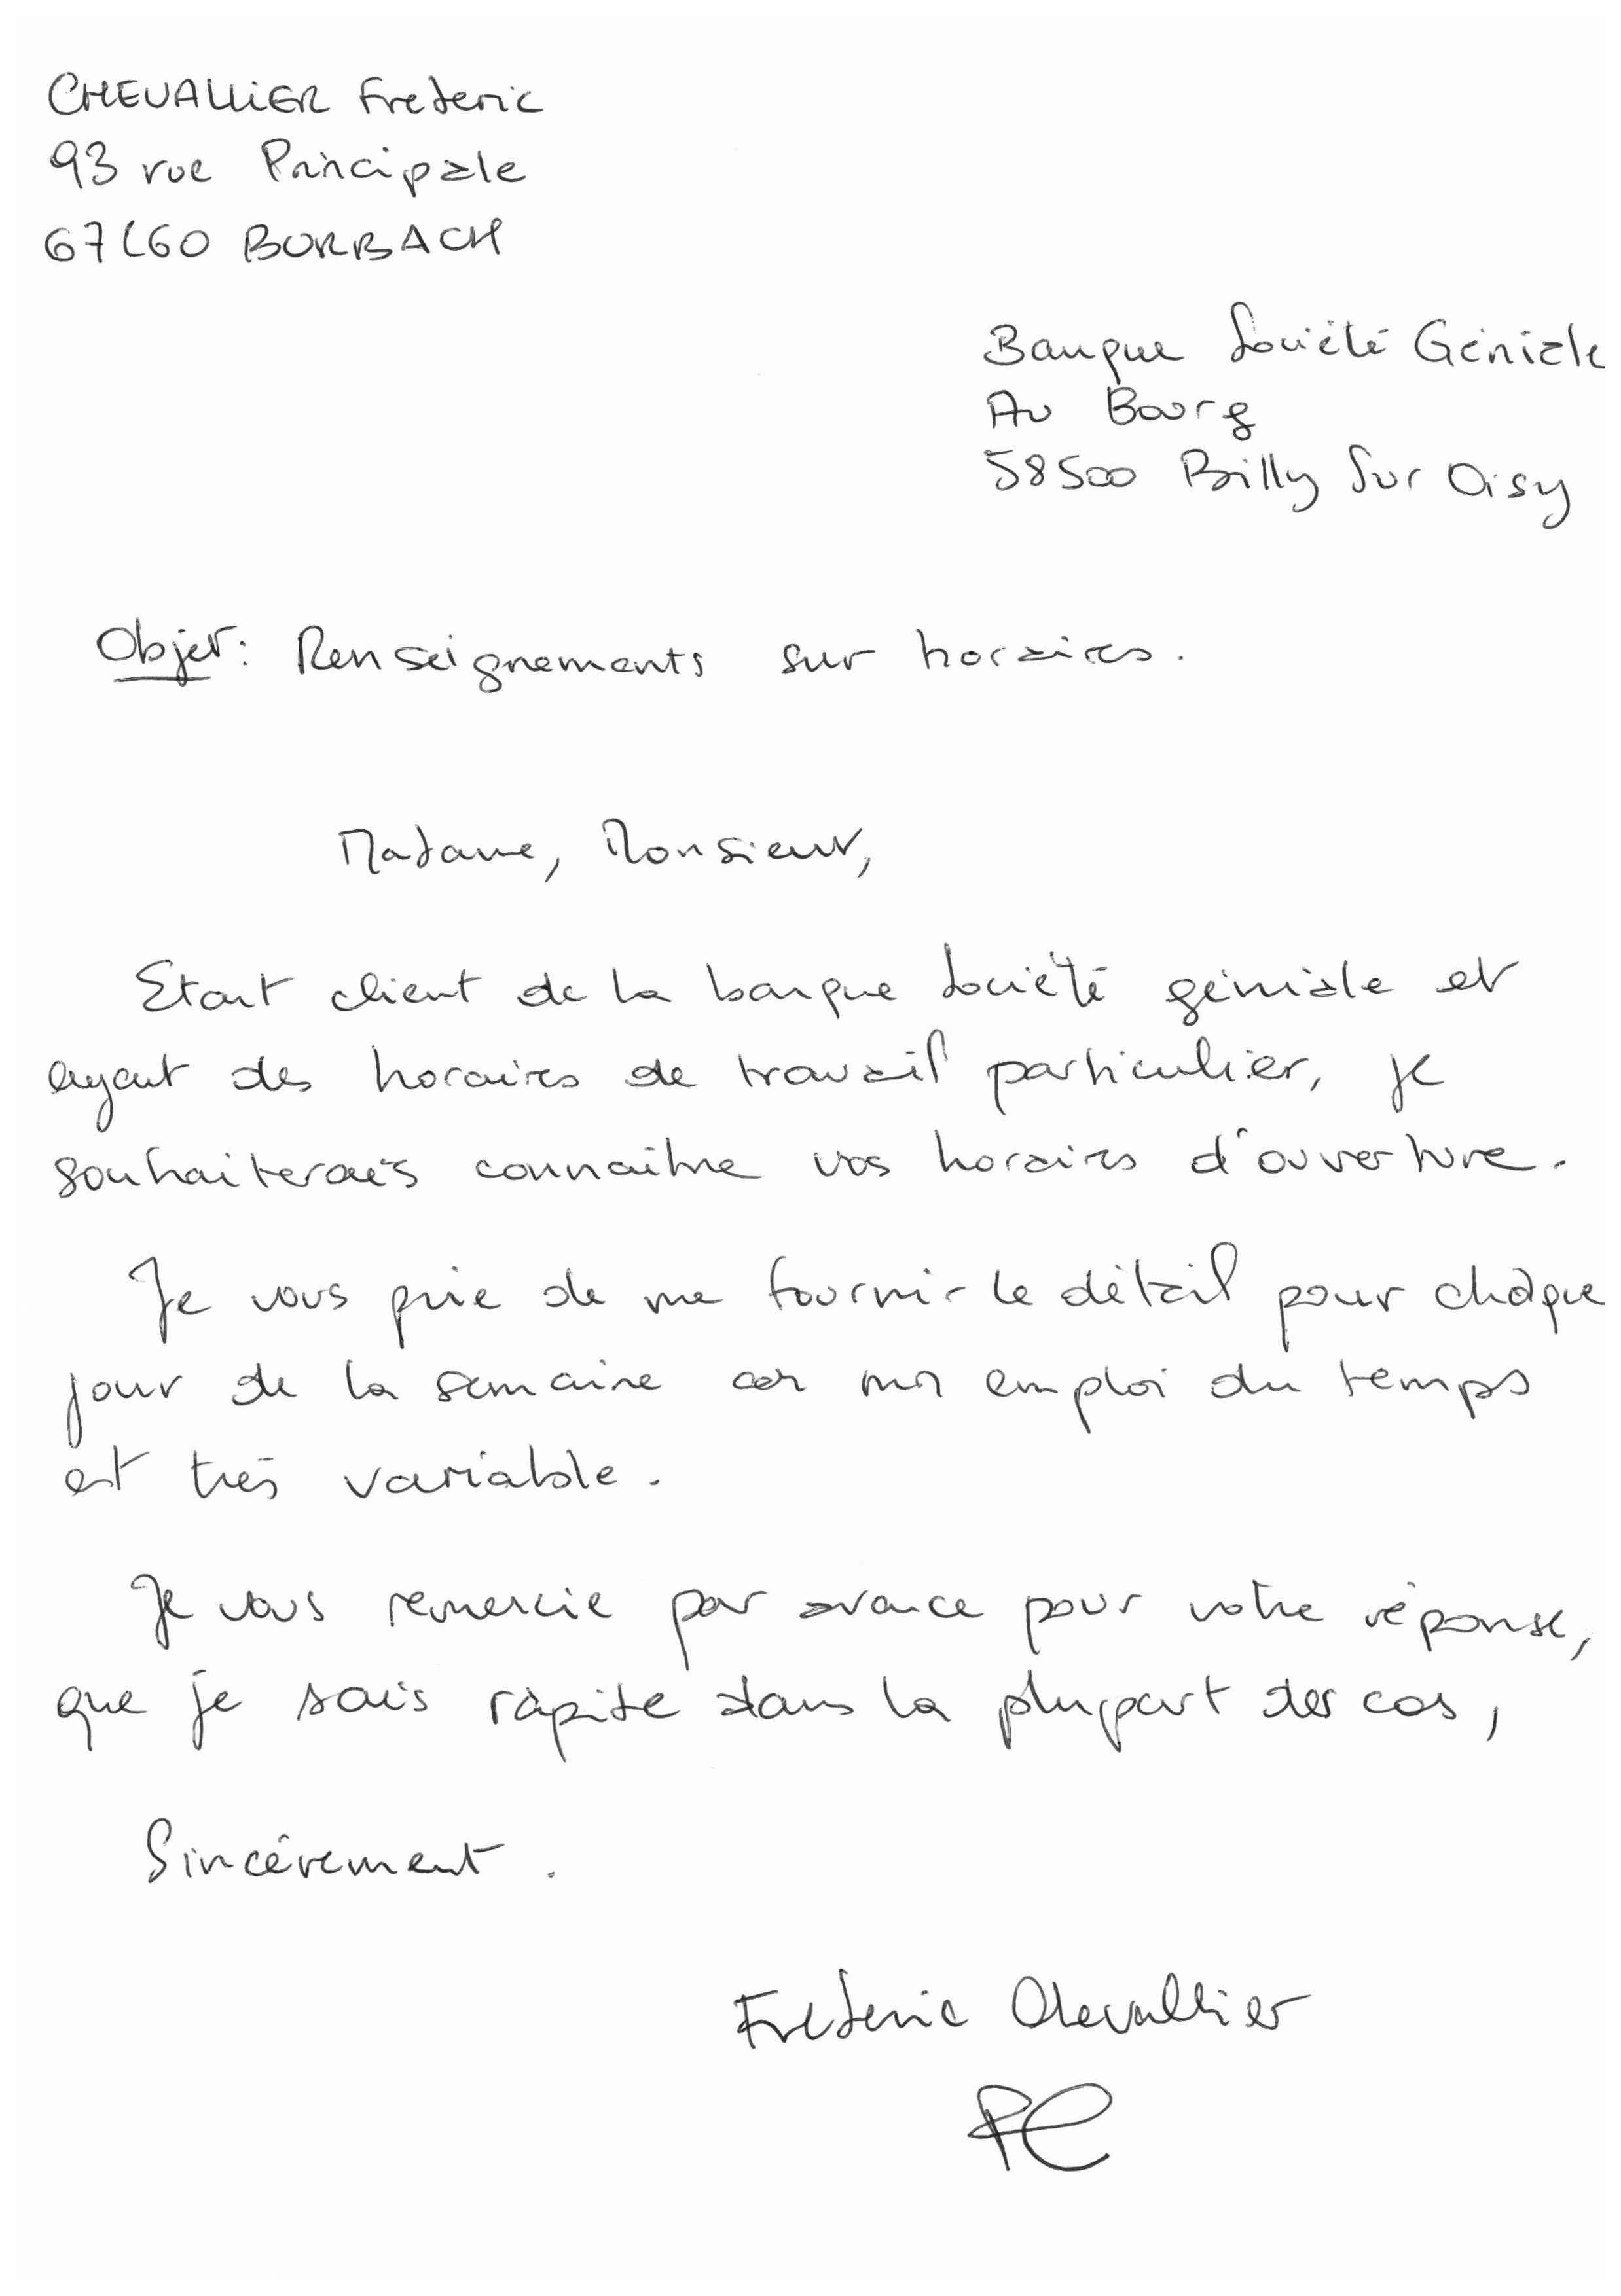 CHEVALLIER Frederic
93 rue Principale
67260 BURBACH
Banque Société Géniale
Au Bourg
58500 Billy Sur Oisy
Objet: Renseignements sur horaires.
Madame, Monsieur,
Etant client de la banque Société géniale et
ayant des horaires de travail particulier, je
souhaiterais connaitre vos horaires d'ouverture.
Je vous prie de me fournir le détail pour chaque
jour de la semaine car mon emploi du temps
est très variable.
Je vous remercie par avance pour votre réponse,
que je sais rapide dans la plupart des cas,
Sincérement.
Frederic Chevallier
FC